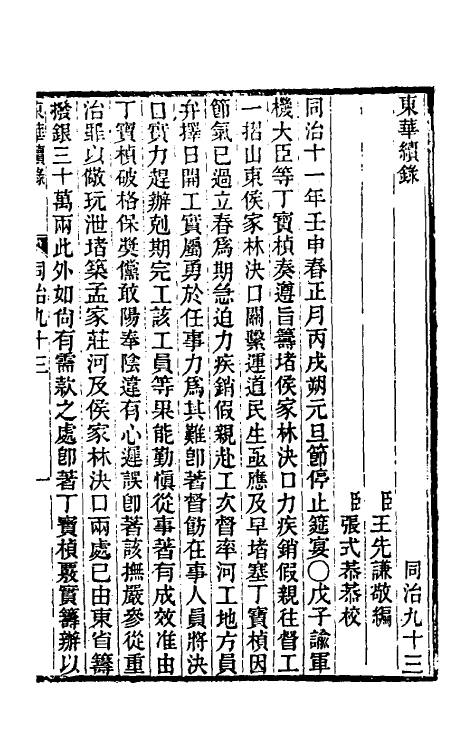 東華續錄 同治九十三
臣王先謙敬編
臣張式恭恭校
同治十一年壬申春正月丙戌朔元旦節停止筵宴○戊子諭軍
機大臣等丁寶楨奏遵旨籌堵侯家林決口力疾銷假親往督工
一摺山東侯家林決口關繫運道民生亟應及早堵塞丁寶楨因
節氣已過立春爲期急迫力疾銷假親赴工次督率河工地方員
弁擇日開工實屬勇於任事力爲其難卽著督飭在事人員將決
口實力趕辦剋期完工該工員等果能勤愼從事著有成效准由
丁寶楨破格保獎儻敢陽奉陰違有心遲誤卽著該撫嚴參從重
治罪以儆玩泄堵築孟家莊河及侯家林決口兩處已由東省籌
撥銀三十萬兩此外如尙有需款之處卽著丁寶楨覈實籌辦以
東華續錄 同治九十三 一